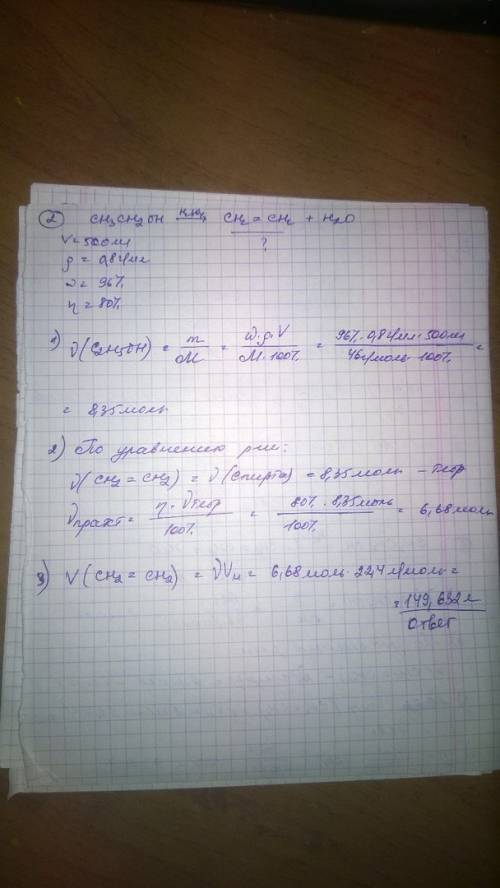 2 CH3CH2OH → CH2 = CH2 + H2O
V = 500 мл ?
ρ = 0,8 г/мл
ω = 96%
η = 80%
1) ν(C2H5OH) = m/M = ω·ρ·V/M·100% = 96%·0,8 г/мл·500мл/46г/моль·100% =
= 8,35 моль
2) По уравнению р-ии:
ν(CH2 = CH2) = ν(спирта) = 8,35 моль – теор
νпракт = η·νтеор/100% = 80%·8,35моль/100% = 6,68 моль
3) V(CH2 = CH2) = νVм = 6,68 моль·22,4 л/моль =
= 149,632 л
ответ